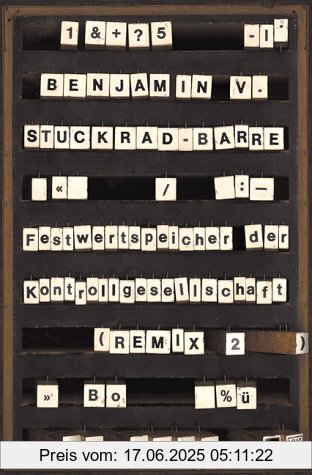 1 &+?5 -I-
BENJAMIN V.
STUCKRAD-BARRE
« / :—
Festwertspeicher der
Kontrollgesellschaft
(REMIX 2 )
» Bo %ü
Preis vom: 17.06.2025 05:11:22